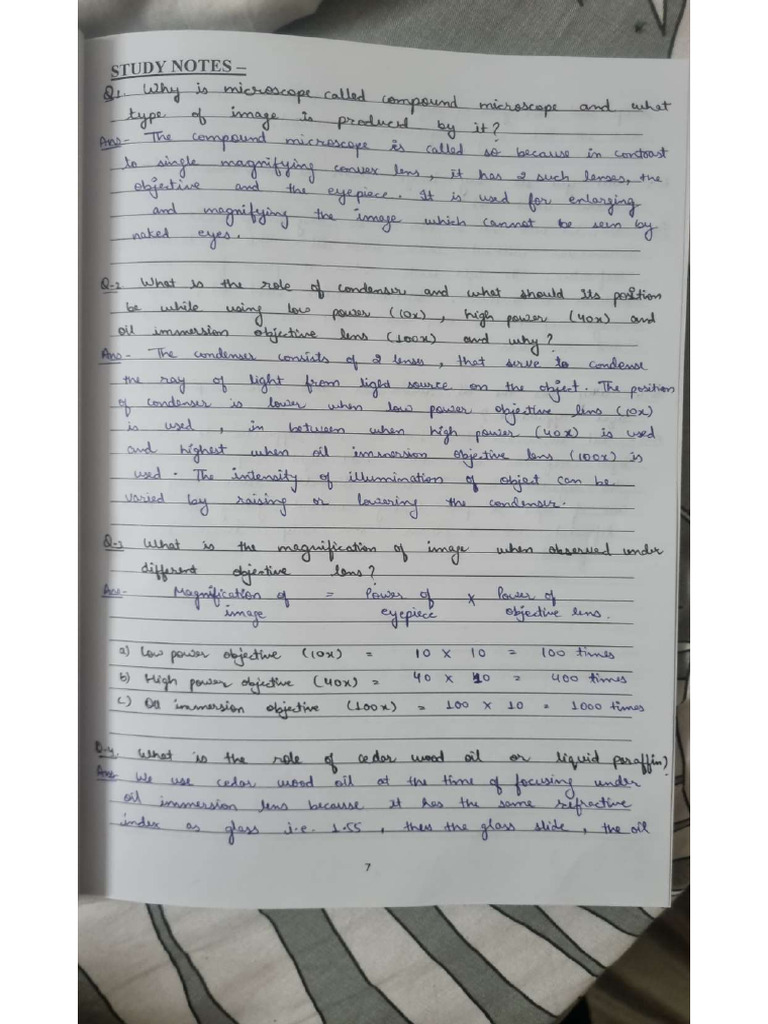 STUDY NOTES –
Q1. Why is microscope called compound microscope and what
type of image is produced by it?
Ans- The compound microscope is called so because in contrast
to single magnifying convex lens, it has 2 such lenses, the
objective and the eyepiece. It is used for enlarging
and magnifying the image which cannot be seen by
naked eyes.
Q-2 What is the role of condenser and what should its position
be while using low power (10x), high power (40x) and
oil immersion objective lens (100x) and why?
Ans- The condenser consists of 2 lenses, that serve to condense
the ray of light from light source on the object. The position
of condenser is lower when low power objective lins (10x)
is used, in between when high power (40x) is used
and highest when oil immersion objective lens (100x) is
used. The intensity of illumination of object can be
varied by raising or lowering the condenser.
Q-3 What is the magnification of image when observed under
different objective lens?
Ans- Magnification of = Power of x Power of
image eyepiece objective lens.
a) Low power objective (10x) = 10 x 10 = 100 times
b) High power objective (40x) = 40 x 10 = 400 times
c) Oil immersion objective (100x) = 100 x 10 = 1000 times
Q-4 What is the role of cedar wood oil or liquid paraffin?
Ans We use cedar wood oil at the time of focusing under
oil immersion lens because it has the same refractive
index as glass i.e. 1.55, thus the glass slide, the oil
7